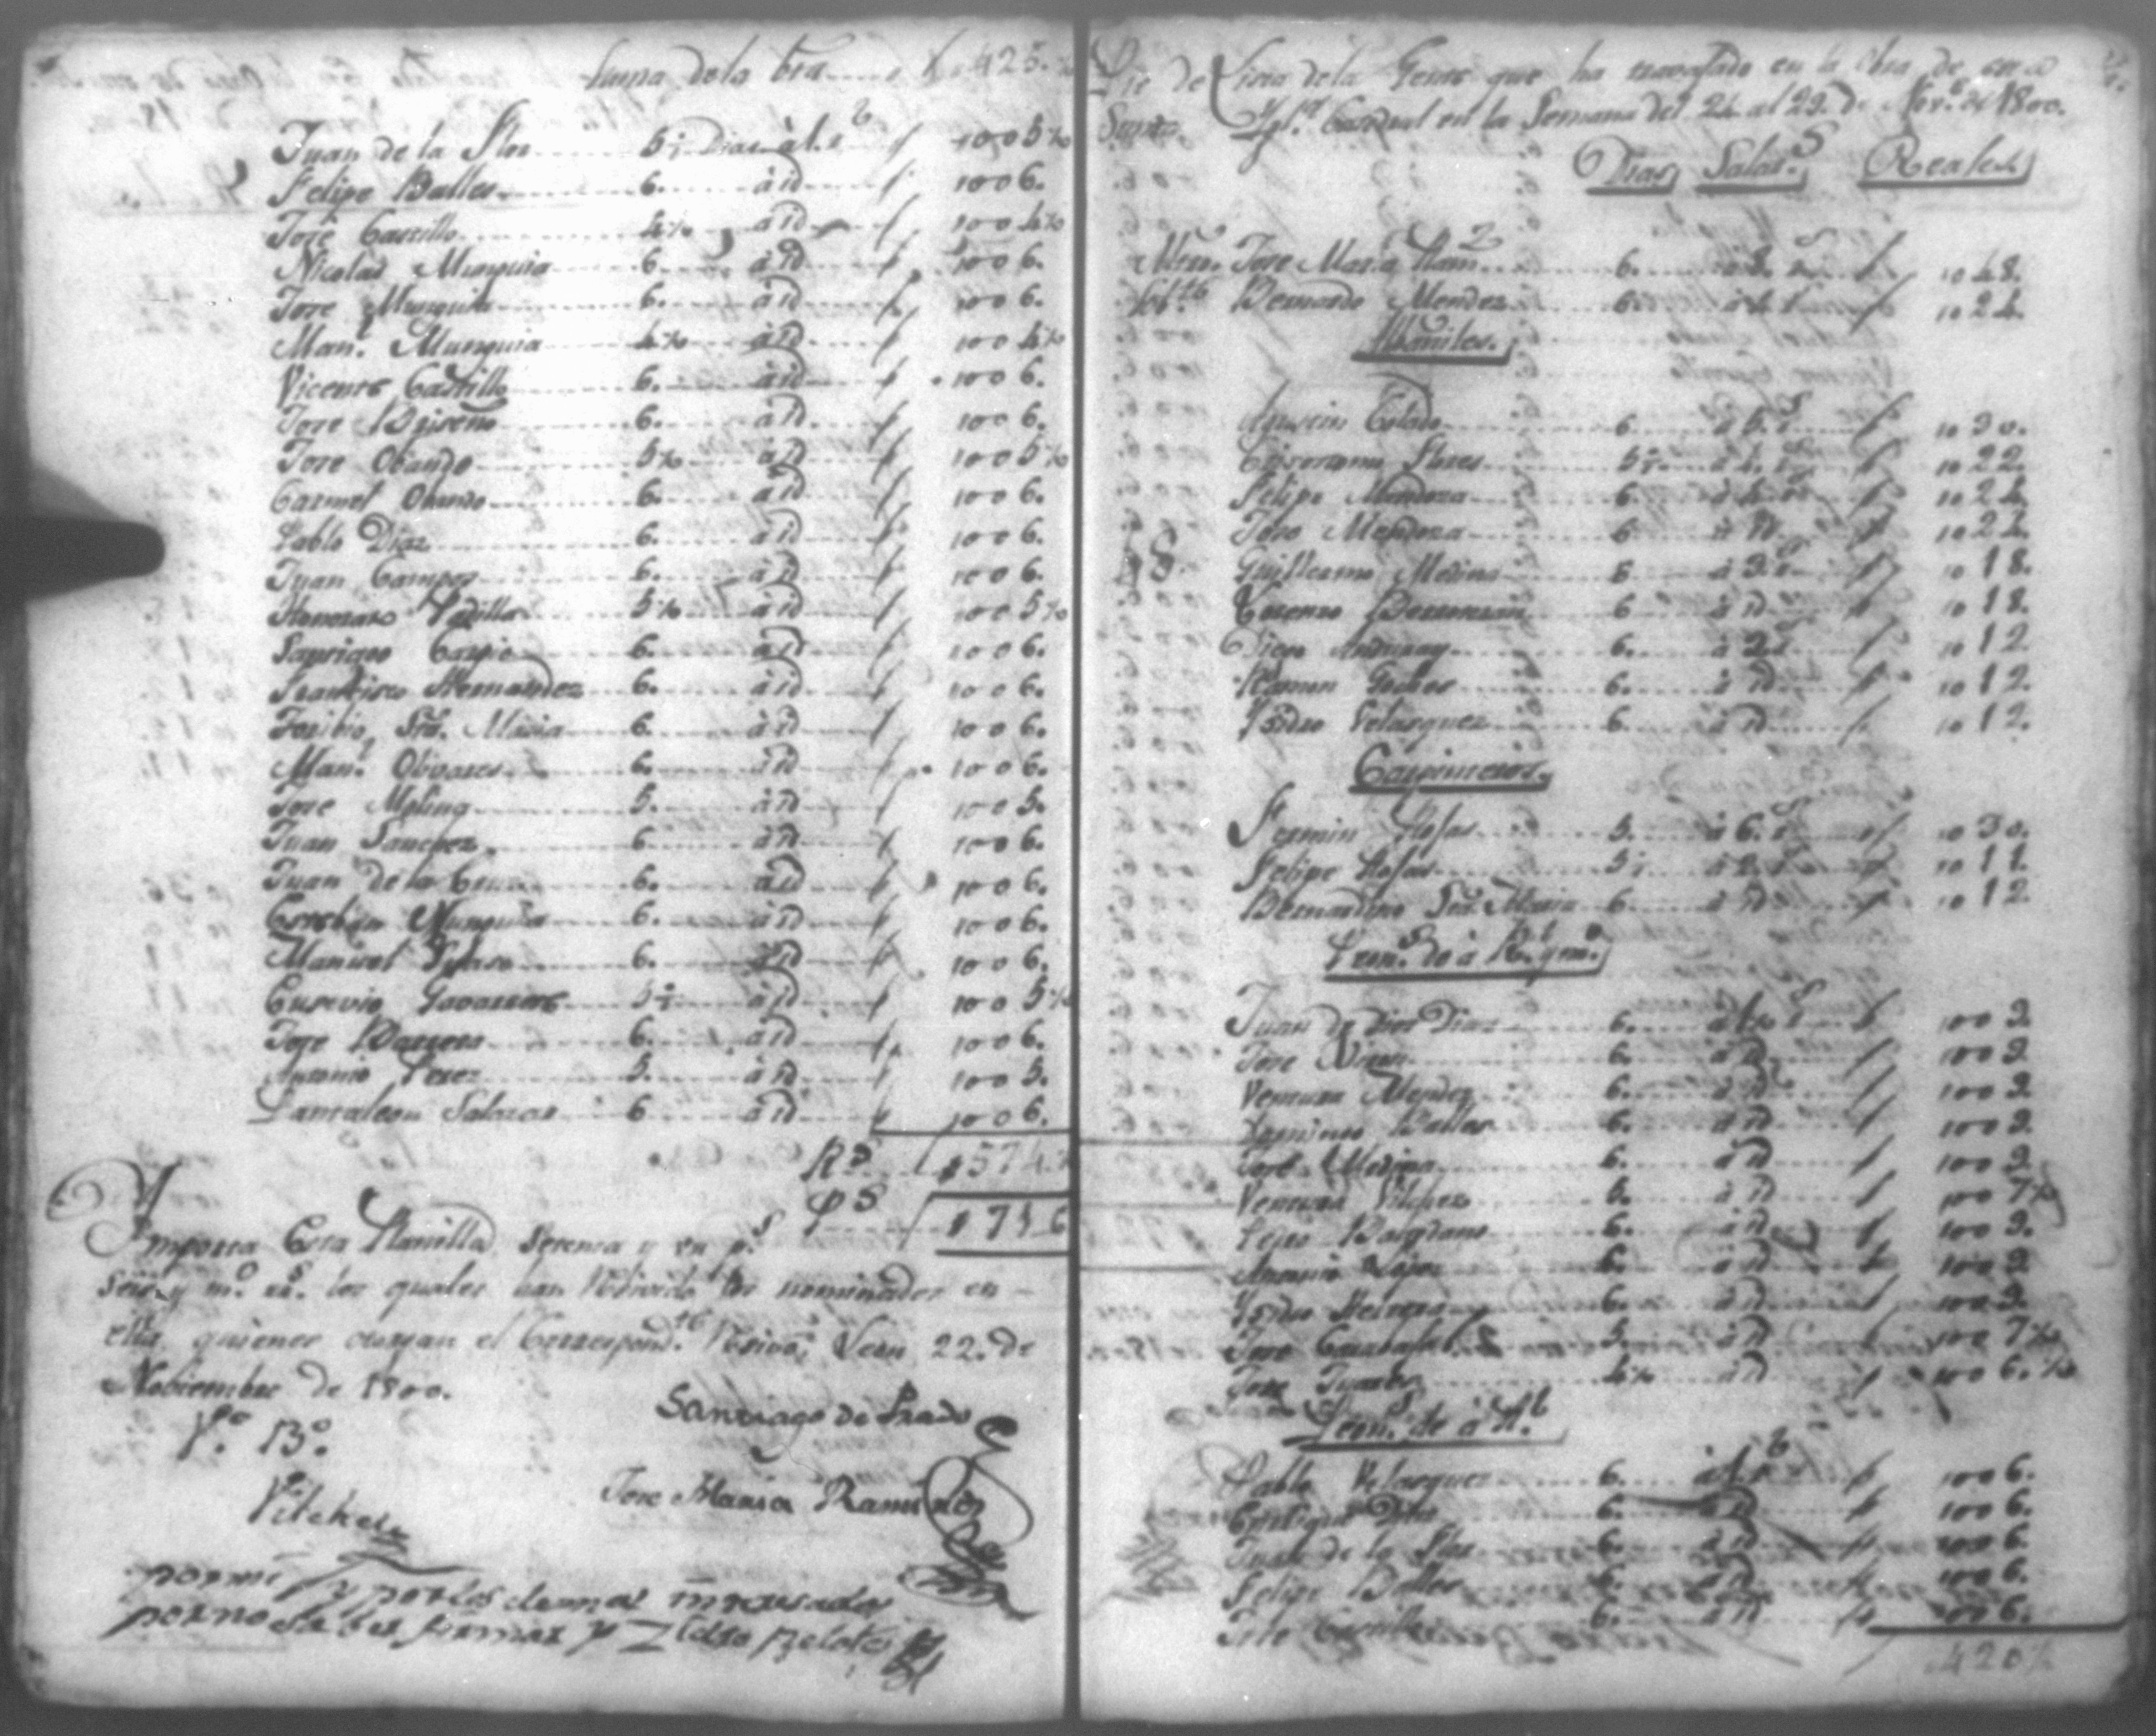 Suma de la bta 425.
Juan de la Flor 5½ Dias à 1. r 1005½
Felipe Balles 6. à id 1006.
Jose Castillo 4½ à id 1004½
Nicolas Munguia 6. à id 1006.
Jose Munguia 6. à id 1006.
Man.l Munguia 4½ à id 1004½
Vicente Castillo 6. à id 1006.
Jose Briseño 6. à id 1006.
Jose Obando 5½ à id 1005½
Carmel Obando 6. à id 1006.
Pablo Diaz 6. à id 1006.
Juan Campos 6. à id 1006.
Honorato Padilla 5½ à id 1005½
6. à id 1006.
Francisco Hernandez 6. à id 1006.
Toribio Sta. Maria 6. à id 1006.
Man.l Olivares 6. à id 1006.
Jose Molina 5. à id 1005.
Juan Sanchez 6. à id 1006.
Juan de la Cruz 6. à id 1006.
Esteban Munguia 6. à id 1006.
Manuel 6. à id 1006.
Eusevio 5½ à id 1005½
Jose Barrera 6. à id 1006.
Antonio Perez 5. à id 1005.
Pantaleon Salazar 6 à id 1006.
R.s 574
P.s 71 6
Importa Esta Planilla, setenta y un p.s
seis y m.o r.s los quales han Recivido los nominados en
ella, quienes otorgan el Correspond.te Recivo, Leon 22. de
Nobiembre de 1800.
Santiago de Prado
V.o B.o
Jose Maria Ramirez
Vilchez
por mi y por los demas interesados
por no saber firmar
Lista de la Gente que ha travajado en la Obra de esta
Igl.a en la Semana del 24 al 29. de Nov.e de 1800.
Dias Salar.s Reales
Mro. Jose Maria Ram.z 6. à 8. r.s 1048.
Sob.te Bernardo Mendez 6. à 4. r.s 1024.
Albañiles.
Agustin Tolado 6. à 5. r.s 1030.
Crisostomo Flores 5½ à 4. r.s 1022.
Felipe Mendoza 6. à 4. r.s 1024.
Jose Mendoza 6 à id 1024.
Guillermo Medina 6 à 3. r.s 1018.
Lorenzo 6 à id 1018.
Diego 6. à 2. r.s 1012.
Ramon 6. à id 1012.
Ysidro Velazquez 6. à id 1012.
Carpinteros.
Fermin Rosas 5. à 6. r.s 1030.
Felipe Rosas 5½ à 2. r.s 1011.
Bernardino Sta. Maria 6. à id 1012
Peon.s de à R.l y m.o
Juan de Dios Diaz 6. à 1½ r.s 1009.
Jose 6. à id 1009.
Ventura Mendez 6. à id 1009.
Balles 6. à id 1009.
Jose Medina 6. à id 1009.
Ventura Vilchez 5. à id 1007½
6. à id 1009.
Antonio 6. à id 1009
Ysidro Herrera 6. à id 1009.
Jose 5. à id 1007½
Jose 4½ à id 1006.¾
Peon.s de à R.l
Pablo Velasquez 6. à 1. r 1006.
Diaz 6. à id 1006.
Juan de la Flor 6. à id 1006.
Felipe Balles 6. à id 1006.
Jose Castillo 6. à id 1006.
420¼